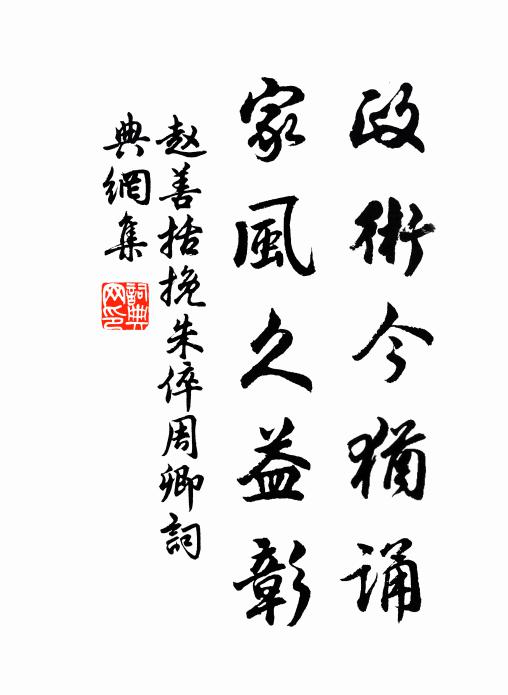 政術今猶誦
家風久益彰
赵善括挽朱倅周卿詞
典網集
詞典网印